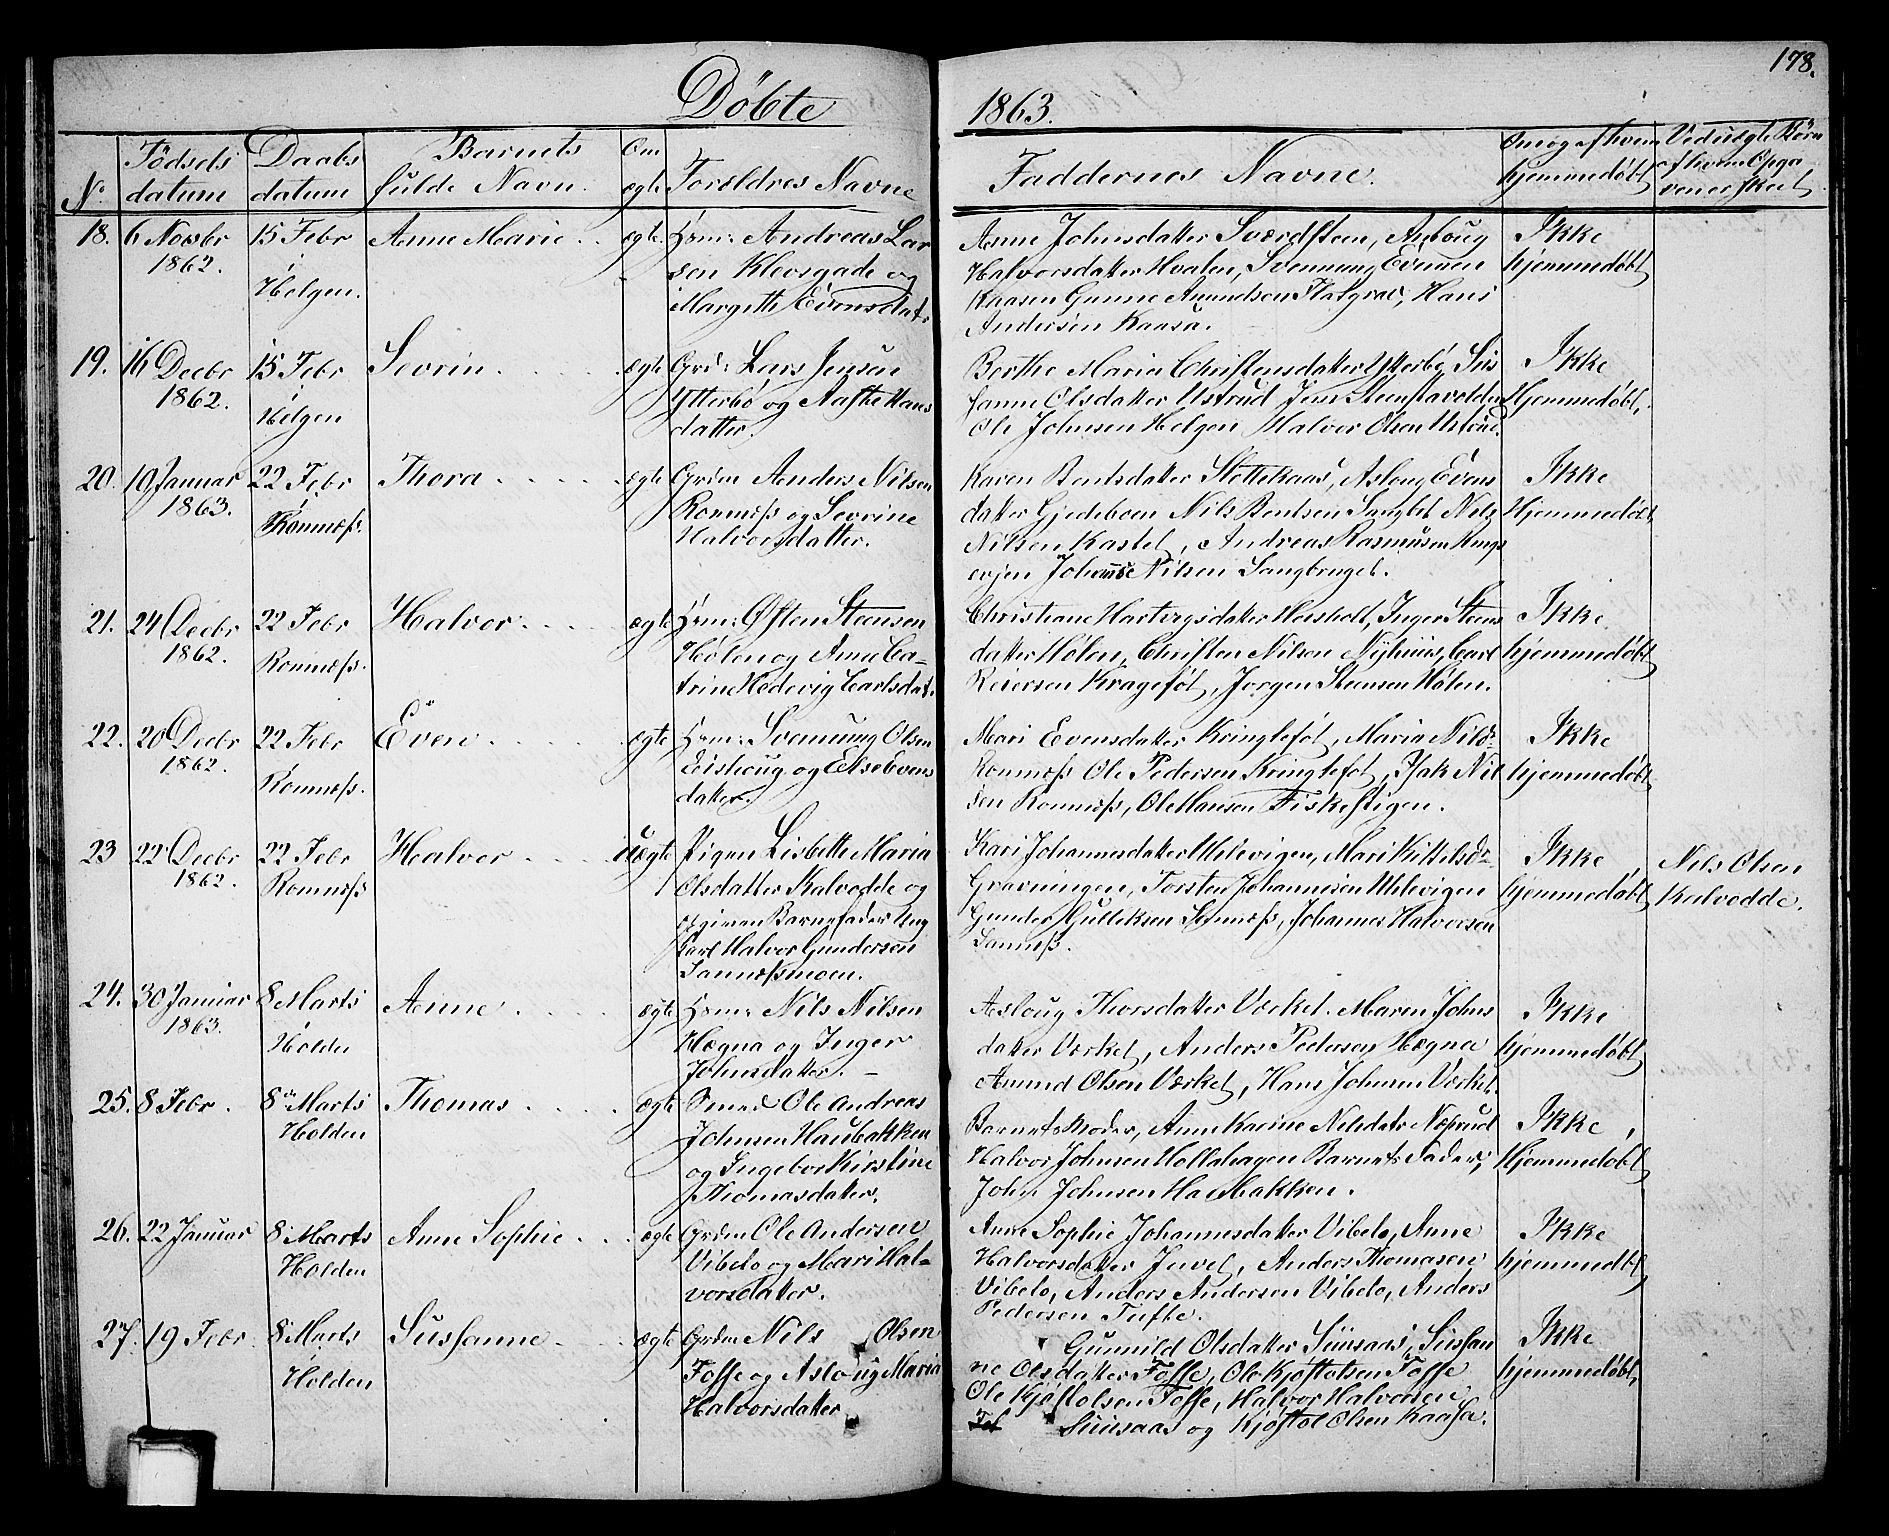 178.
Döbte
1863.
No.
Födsels
datum
Daabs
datum
Barnets
fulde Navn.
Om
ægte
Forældres Navne
Faddernes Navne.
Om og af hvem
hjemmedöbt
Ved uægte Börn
af hvem Opga
ven er skeet
18. 6 Novbr
1862.
15 Febr
i
Helgen.
Anne Marie . .
ægte.
Hsm: Andreas Lar
sen Klevsgade og
Margithe Evensdat.
Anne Johnsdatter Sværdsteen, Anlaug
Halvorsdatter Hvalen, Svennung Evensen
Kaasen Gunne Amundsen Flatgrav, Hans
Andersen Kaasa.
Ikke
hjemmedöbt
19. 16 Decbr
1862.
15 Febr
i
Helgen
Sevrin . . . .
ægte
Grdr: Lars Jensen
Ytterbö og Aaste Hans
datter.
Berthe Maria Christensdatter Ytterbö, Sus
sanne Olsdatter Ustrud Jens Steenstavolden
Ole Johnsen Helgen Halvor Olsen Ustrud.
Ikke
Hjemmedöbt.
20. 10 Januar
1863.
22 Febr
i
Romnæss.
Thora . . . . .
ægte
Grdm Anders Nilsen
Romnæss og Sevrine
Halvorsdatter.
Karen Bentsdatter Slottekaas, Aslaug Evens
datter Gjedeboen Nils Bentsen Langbt Nils
Nilsen Kastet, Andreas Rasmusen Kings
evjen Johannes Nilsen Langbruget.
Ikke
Hjemmedöbt
21. 24 Decbr
1862.
22 Febr
Romnæss.
Halvor . . . .
ægte
Hsm: Østen Steensen
Hölen og Anne Ca-
trine Hedevig Carlsdat.
Christiane Hartvigsdatter Hersholt, Inger Steens
datter Hölen, Christen Nilsen Nyhuus, Carl
Reiersen Krageföt, Jörgen Steensen Hölen.
Ikke
hjemmedöbt
22. 20 Decbr
1862.
22 Febr
Romnæss.
Even . . . . .
ægte
Hsm: Svennung Olsen
Eishoug og Else Evens
datter.
Mari Evensdatter Kringleföt, Maria Nilsd.
Romnæss Ole Pedersen Kringlefot, Isak Nil
sen Romnæss, Ole Hansen Fiskestigen.
Ikke
hjemmedöbt
23 22 Decbr
1862.
22 Febr
Romnæss
Halvor . . . .
uægte
Pigen Lisbethe Maria
Olsdatter Kalvedde og
opgiven Barnefader Ung
karl Halvor Gundersen
Sannæssmoen.
Kari Johannesdatter Uhlevigen, Mari Kittelsd.
Gravningen, Torsten Johannesen Uhlevigen
Gunder Gulliksen Sannæss, Johannes Halvorsen
Sannæss.
Ikke
hjemmedöbt
Nils Olsen
Kalvedde.
24. 30 Januar
1863.
8 Marts
i
Holden
Anne . . . .
ægte
Hsm: Nils Nilsen
Hægna og Inger
Johnsdatter. -
Aslaug Thorsdatter Værket. Maren Johns
datter Værket, Anders Pedersen Hægna
Amund Olsen Værket, Hans Johnsen Værket.
Ikke
hjemmedöbt
25. 8 Febr.
8 Marts
Holden
Thomas . . . .
ægte
Smed Ole Andreas
Johnsen Haubakken
og Ingebor Kirstine
Thomasdatter.
Barnets Moder, Anne Karine Nilsdatr Næsrud
Halvor Johnsen Hollahagen Barnets Fader,
John Johnsen Haubakken.
Ikke
Hjemmedöbt
26. 22 Januar
8 Marts
Holden
Anne Sophie . . .
ægte
Grdm Ole Andersen
Vibeto og Mari Hal-
vorsdatter.
Anne Sophie Johannesdatter Vibeto, Anne
Halvorsdatter Juvet, Anders Thomasen
Vibeto, Anders Andersen Vibeto, Anders
Pedersen Tufte.
Ikke
hjemmedbt
27. 19 Febr.
8 Marts
Holden
Sussanne . . .
ægte
Grdm: Nils Olsen
Fosse og Aslaug Maria
Halvorsdatter
Gunnild Olsdatter Siusaas, Sussan
ne Olsdatter Fosse, Ole Kjöstolsen Fosse
Ole Kjöstolsen Fosse, Halvor Halvorsen
Siusaas og Kjöstol Olsen Kaasa.
Ikke
hjemmedöbt,